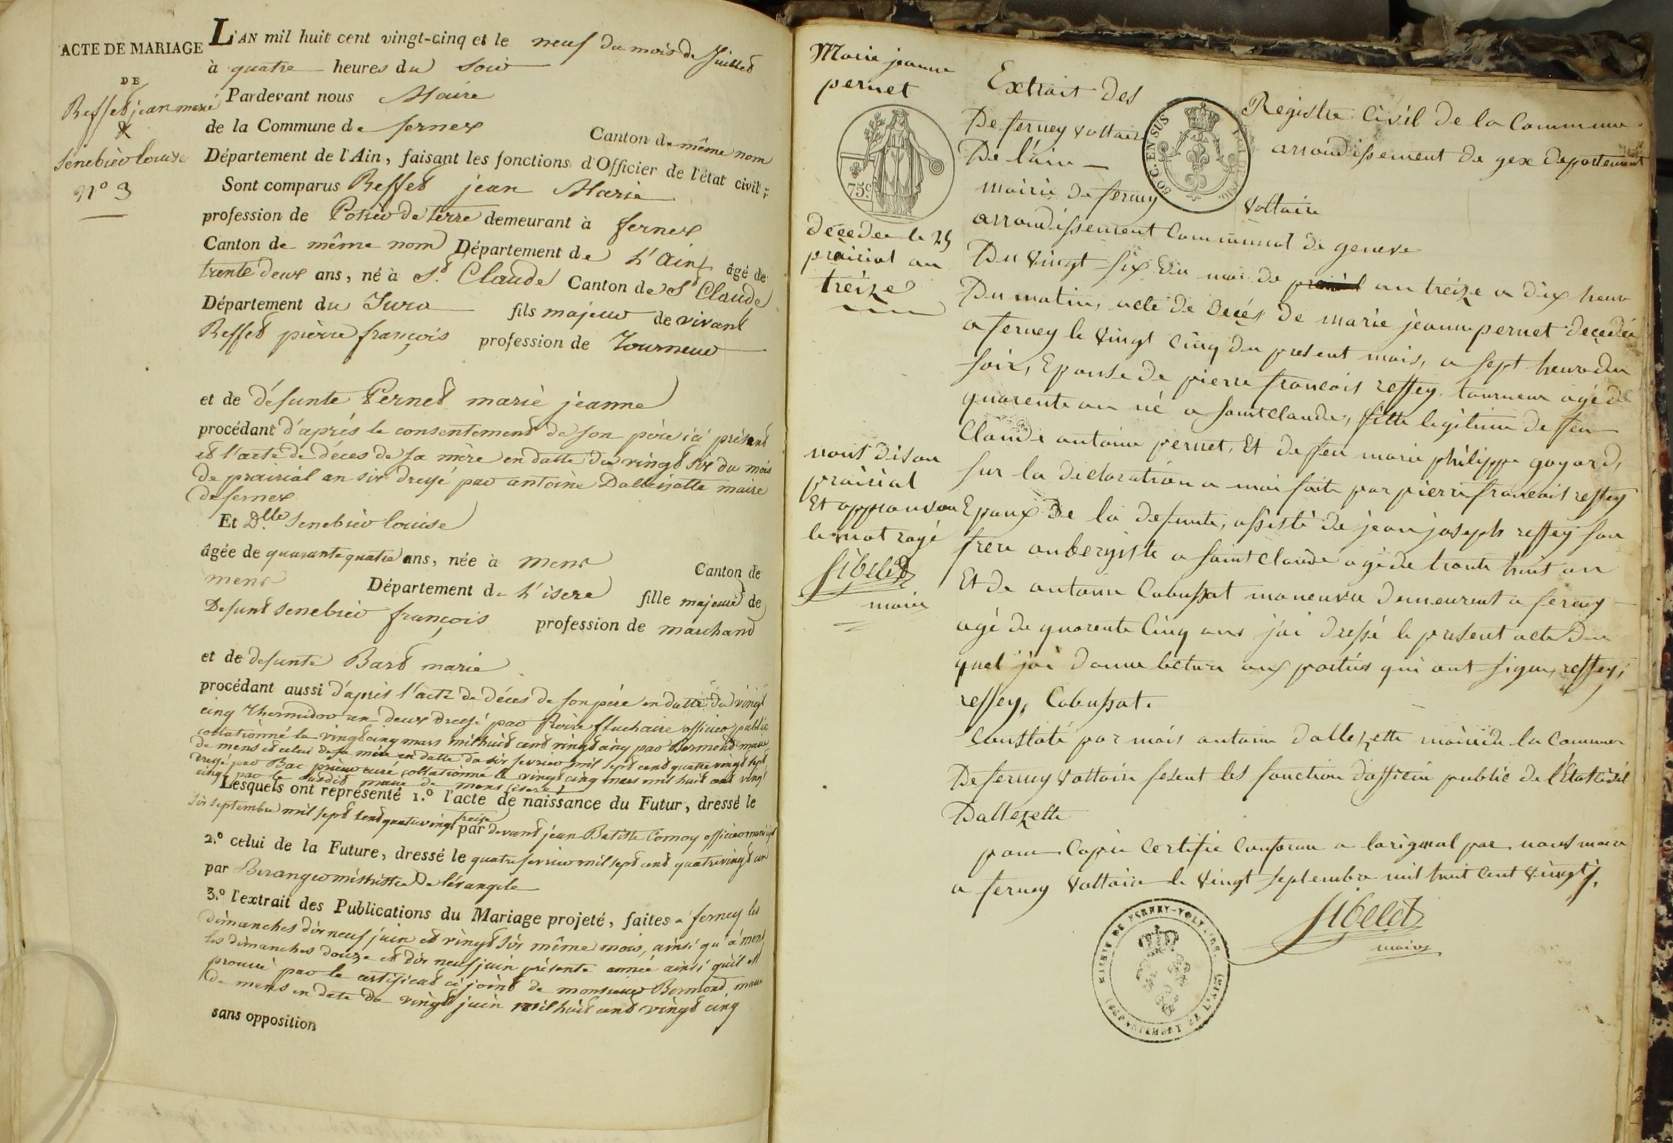 ACTE DE MARIAGE
DE
Reffed jean marie
&
Senebier louise
N.º 3
L'AN mil huit cent vingt-cinq et le neuf du mois de Juillet
à quatre heures du soir
Pardevant nous Maire
de la Commune de fernex Canton de même nom
Département de l'Ain, faisant les fonctions d'Officier de l'état civil;
Sont comparus Reffed jean Marie
profession de Potier de terre demeurant à fernex
Canton de même nom Département de L'Ain âgé de
trente deux ans, né à St. Claude Canton de St Claude
Département du Jura fils majeur de vivant
Reffed pierre françois profession de Tourneur
et de défunte Perned marie jeanne
procédant d'après le consentement de son père ici présent
et l'acte de décès de sa mère en datte du vingt six du mois
de prairial an six dressé par antoine Dallezette maire
de fernex
Et Dlle Senebier louise
âgée de quarante quatre ans, née à mens Canton de
mens Département de L'isere fille majeure de
Defunt Senebier françois profession de marchand
et de defunte Bard marie
procédant aussi d'après l'acte de décès de son père en datte du vingt
cinq Thermidor an deux dressé par officier public
collationné le vingt cinq mars mil huit cent vingt cinq par Bermond maire
de mens et celui de sa mère en datte du six fevrier mil sept cent quatre vingt sept
par Bac prieur curé collationné le vingt cinq mars mil huit cent vingt
cinq par le susdit maire de mens (isere)
Lesquels ont représenté 1.º l'acte de naissance du Futur, dressé le
six septembre mil sept cent quatre vingt treize par devant jean Batiste officier municipal
2.º celui de la Future, dressé le quatre fevrier mil sept cent quatre vingt un
par Beranger ministre de l'évangile
3.º l'extrait des Publications du Mariage projeté, faites a ferney les
dimanches dix neuf juin et vingt six même mois, ainsi qu'à mens
les dimanches douze et dix neuf juin présente année ainsi qu'il est
prouvé par le certificat ci joint de monsieur Bermond maire
de mens en date du vingt juin mil huit cent vingt cinq
sans opposition
Marie jeanne
pernet
75c
décédée le 25
prairial an
treize
nous disons
prairial
Et approuvons
le mot rayé
Sibelet
maire
Extrait des Registre Civil de la Commune
De ferney voltaire arrondissement de gex departement
De l'ain
50 C. EN SUS
mairie de ferney voltaire
arrondissement Communal de geneve
Du vingt six du moi de prairial an treize a dix heure
Du matin, acte de Décés de marie jeanne pernet decedée
a ferney le vingt cinq du present mois, a sept heure du
soir, Epouse de pierre francois reffey tourneur agé de
quarente an né a saint claude, fille legitime de feu
Claude antoine pernet, Et de feu marie philippe goyard,
sur la declaration a moi faite par pierre francois reffey
Epoux De la defunte, assisté de jean joseph reffey son
frere aubergiste a saint claude agé de trente huit an
Et de antoine Cabussat maneuvre demeurent a ferney
agé de quarente Cinq ans j'ai dressé le present acte du
quel j'ai donné leture aux parties qui ont signe, reffey,
reffey, Cabussat.
Constaté par mois antoine dallezette maire de la Commune
De ferney voltaire fesent les fonction d'officier public de l'Etat civil
Dallezette
pour Copie Certifié Conforme a l'original par nous maire
a ferney Voltaire le vingt septembre mil huit cent vingt
Sibelet
maire
MAIRIE DE FERNEY-VOLTAIRE